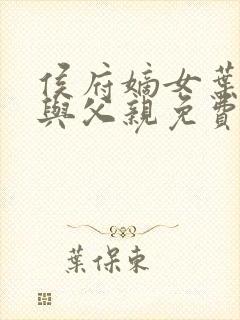 侯府嫡女葉
與父親免費
葉保東